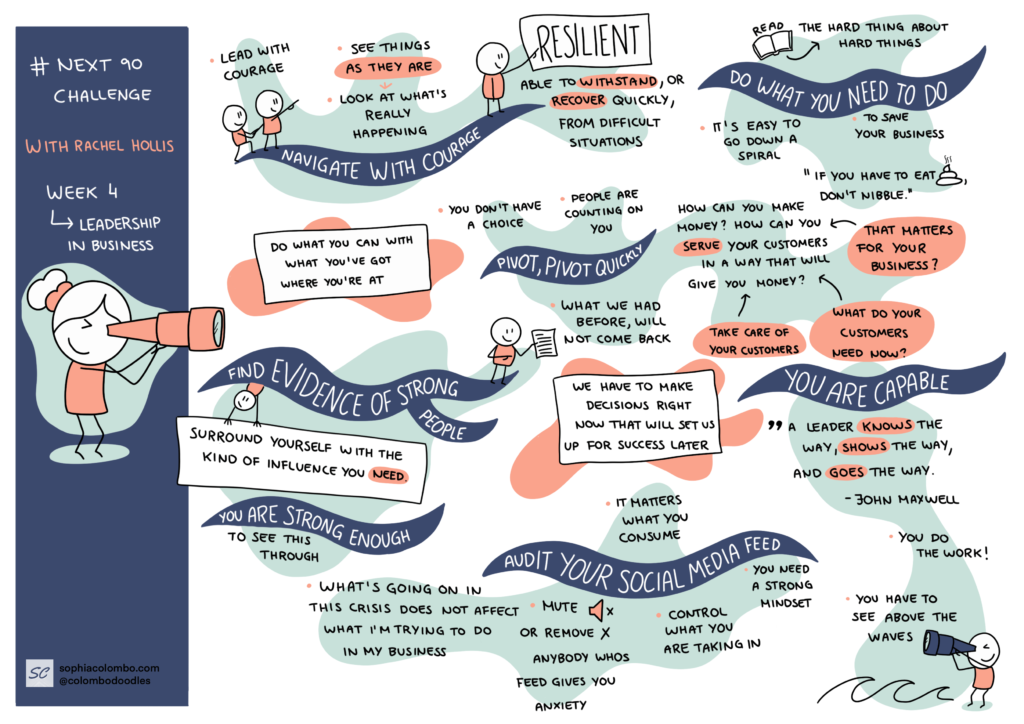 # NEXT 90
CHALLENGE
WITH RACHEL HOLLIS
WEEK 4
LEADERSHIP
IN BUSINESS
SC
sophiacolombo.com
@colombodoodles
• LEAD WITH
COURAGE
• SEE THINGS
AS THEY ARE
LOOK AT WHAT'S
REALLY
HAPPENING
NAVIGATE WITH COURAGE
RESILIENT
ABLE TO WITHSTAND, OR
RECOVER QUICKLY,
FROM DIFFICULT
SITUATIONS
READ
THE HARD THING ABOUT
HARD THINGS
DO WHAT YOU NEED TO DO
• IT'S EASY TO
GO DOWN A
SPIRAL
• TO SAVE
YOUR BUSINESS
"IF YOU HAVE TO EAT ,
DON'T NIBBLE."
DO WHAT YOU CAN WITH
WHAT YOU'VE GOT
WHERE YOU'RE AT
• YOU DON'T HAVE
A CHOICE
• PEOPLE ARE
COUNTING ON
YOU
PIVOT, PIVOT QUICKLY
• WHAT WE HAD
BEFORE, WILL
NOT COME BACK
HOW CAN YOU MAKE
MONEY? HOW CAN YOU
SERVE YOUR CUSTOMERS
IN A WAY THAT WILL
GIVE YOU MONEY?
THAT MATTERS
FOR YOUR
BUSINESS?
TAKE CARE OF
YOUR CUSTOMERS
WHAT DO YOUR
CUSTOMERS
NEED NOW?
FIND EVIDENCE OF STRONG
PEOPLE
SURROUND YOURSELF WITH THE
KIND OF INFLUENCE YOU NEED.
YOU ARE STRONG ENOUGH
TO SEE THIS
THROUGH
WE HAVE TO MAKE
DECISIONS RIGHT
NOW THAT WILL SET US
UP FOR SUCCESS LATER
YOU ARE CAPABLE
" A LEADER KNOWS THE
WAY, SHOWS THE WAY,
AND GOES THE WAY.
- JOHN MAXWELL
• YOU DO
THE WORK!
• YOU HAVE TO
SEE ABOVE THE
WAVES
• IT MATTERS
WHAT YOU
CONSUME
AUDIT YOUR SOCIAL MEDIA FEED
• WHAT'S GOING ON IN
THIS CRISIS DOES NOT AFFECT
WHAT I'M TRYING TO DO
IN MY BUSINESS
• MUTE x
OR REMOVE X
ANYBODY WHOS
FEED GIVES YOU
ANXIETY
• CONTROL
WHAT YOU
ARE TAKING IN
• YOU NEED
A STRONG
MINDSET